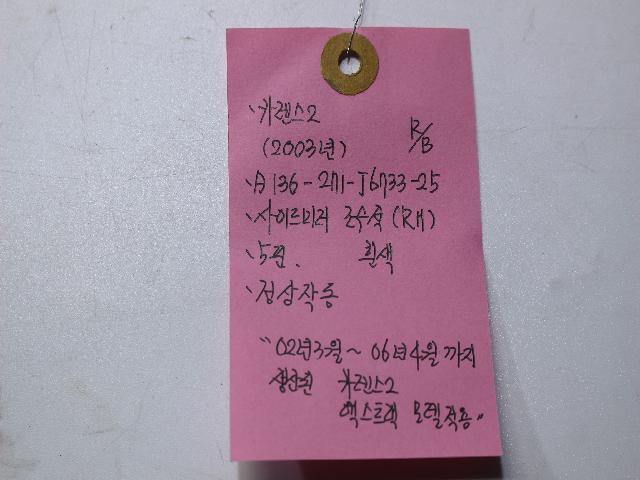 카렌스2
(2003년) R/B
A136-271-J6733-25
사이드미러 조수석 (RH)
5핀. 흰색
정상작동
"02년3월~06년4월까지
생산된 카렌스2
엑스트렉 모델적용"